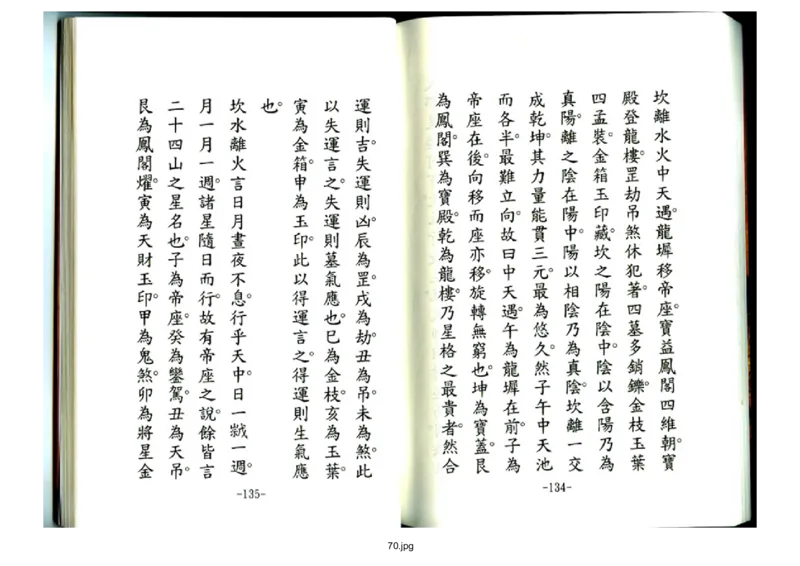 坎離水火中天遇。龍墀移帝座。寶益鳳閣四維朝。寶
殿登龍樓。罡劫吊煞休犯著。四墓多銷鑠。金枝玉葉
四孟裝。金箱玉印藏。坎之陽在陰中。陰以含陽乃為
真陽。離之陰在陽中。陽以相陰乃為真陰。坎離一交
成乾坤。其力量能貫三元。最為悠久。然子午中天池
而各半。最難立向。故曰中天遇。午為龍墀在前。子為
帝座在後。向移而座亦移。旋轉無窮也。坤為寶蓋。艮
為鳳閣。巽為寶殿。乾為龍樓。乃星格之最貴者。然合
-134-
運則吉。失運則凶。辰為罡。戌為劫。丑為吊。未為煞。此
以失運言之。失運則墓氣應也。巳為金枝。亥為玉葉。
寅為金箱。申為玉印。此以得運言之。得運則生氣應
也。
坎水離火言日月晝夜不息。行乎天中。日一週。
月一月一週。諸星隨日而行。故有帝座之說。餘皆言
二十四山之星名也。子為帝座。癸為鑾駕。丑為天吊。
艮為鳳閣燿。寅為天財玉印。甲為鬼煞。卯為將星金
-135-
70.jpg